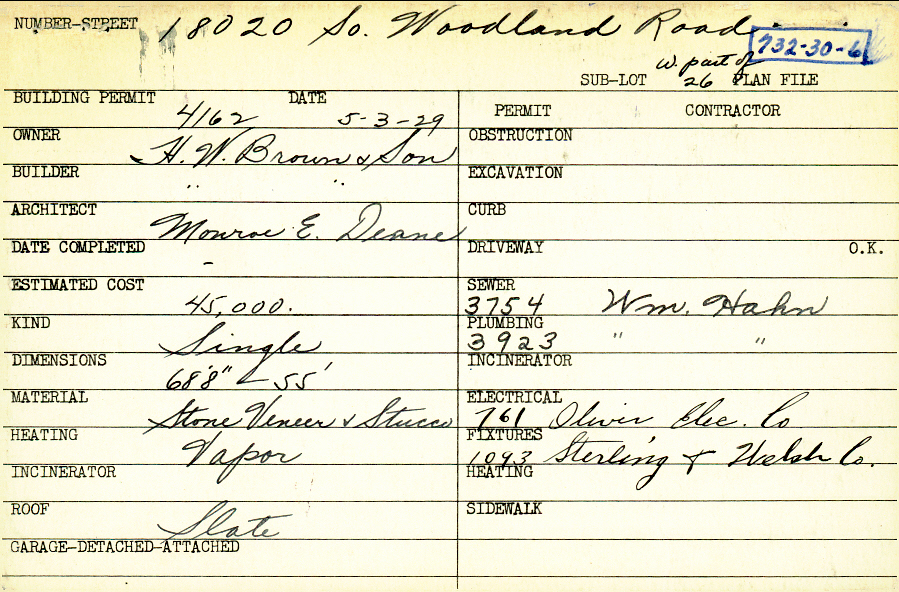 NUMBER-STREET 18020 So. Woodland Road
732-30-6
W. part of
SUB-LOT 26 PLAN FILE
BUILDING PERMIT DATE
4162 5-3-29
PERMIT CONTRACTOR
OWNER H. W. Brown & Son
OBSTRUCTION
BUILDER " "
EXCAVATION
ARCHITECT Monroe E. Deane
CURB
DATE COMPLETED -
DRIVEWAY O.K.
ESTIMATED COST 45,000.
SEWER
3754 Wm. Hahn
KIND Single
PLUMBING
3923 " "
DIMENSIONS 68'8" - 55'
INCINERATOR
MATERIAL Stone Veneer & Stucco
ELECTRICAL
761 Oliver Elec. Co
HEATING Vapor
FIXTURES
1093 Sterling & Welsh Co.
INCINERATOR
HEATING
ROOF Slate
SIDEWALK
GARAGE-DETACHED-ATTACHED